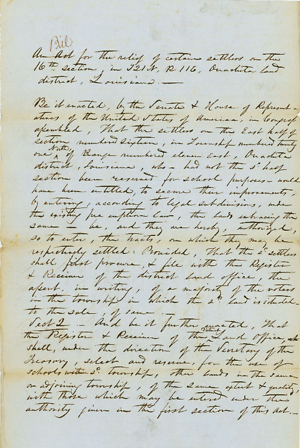 Bill
An Act for the relief of certain settlers on the
16th section, in T21N. R 11 E, Ouachita land
district, Louisiana. —
Be it enacted, by the Senate & House of Represent-
atives of the United States of America, in Congress
assembled, That the settlers on the East half of
section numbered sixteen, in Township numbered twenty
one, North of Range numbered eleven east, Ouachita
district, Louisiana, who had not the sd half
section been reserved for school purposes would
have been entitled, to secure their improvements,
by entering, according to legal subdivisions, under
the existing pre emption laws, the lands embracing the
same — be, and they are hereby, authorized,
so to enter, the tracts, on which they may be
respectively settled: Provided, That the sd settlers
shall first procure, & file with the Register
& Receiver of the district land office, the
assent, in writing, of a majority of the voters
in the township in which the sd land is situated
to the sale of same.
Sect 2 — And be it further enacted, That
the Register & Receiver of the Land office,
shall, under the direction of the Secretary of the
Treasury, select and reserve for the use of
schools within sd township, other lands in the same
or adjoining township, of the same extent & quality,
with those which may be entered under the
authority given in the first section of this act.